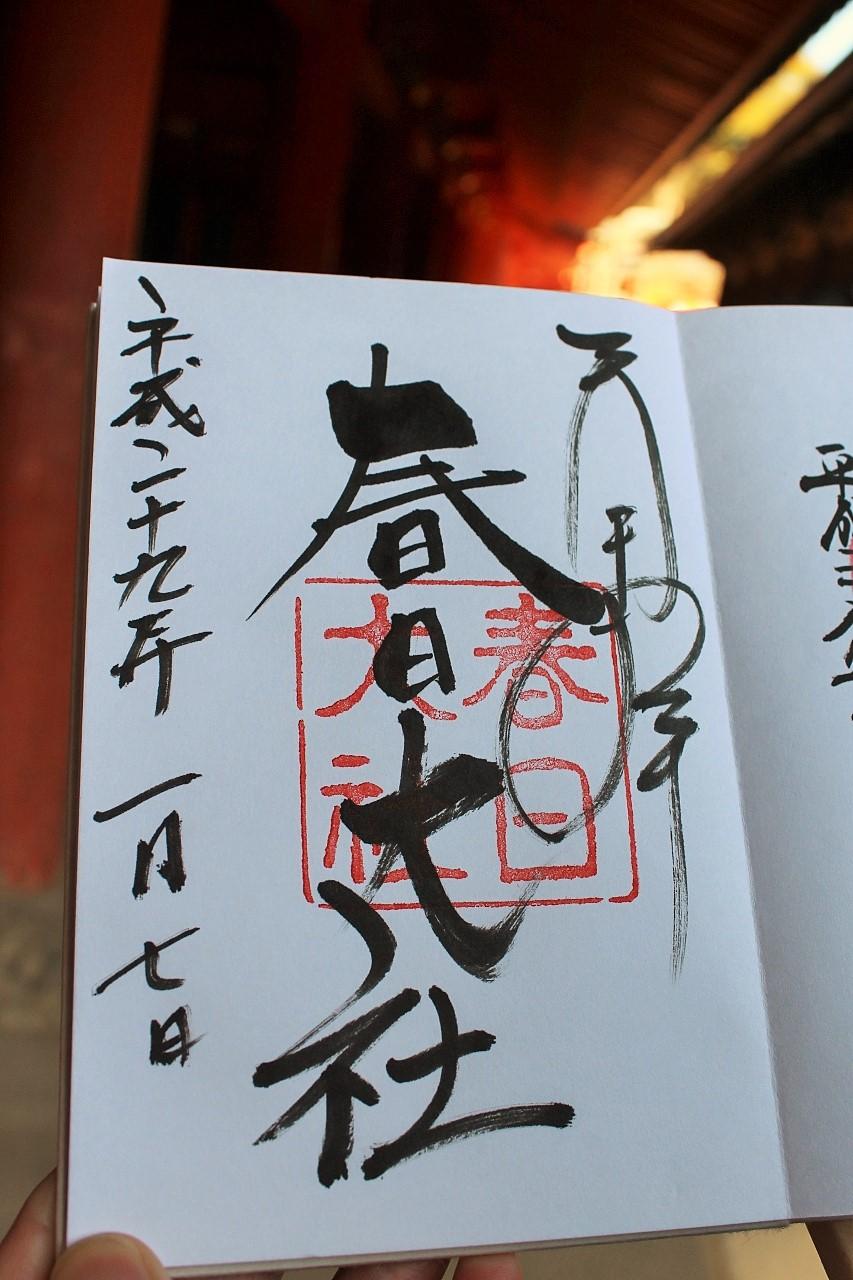 平成
春日大社
春日
大社
平成二十九年 一月七日